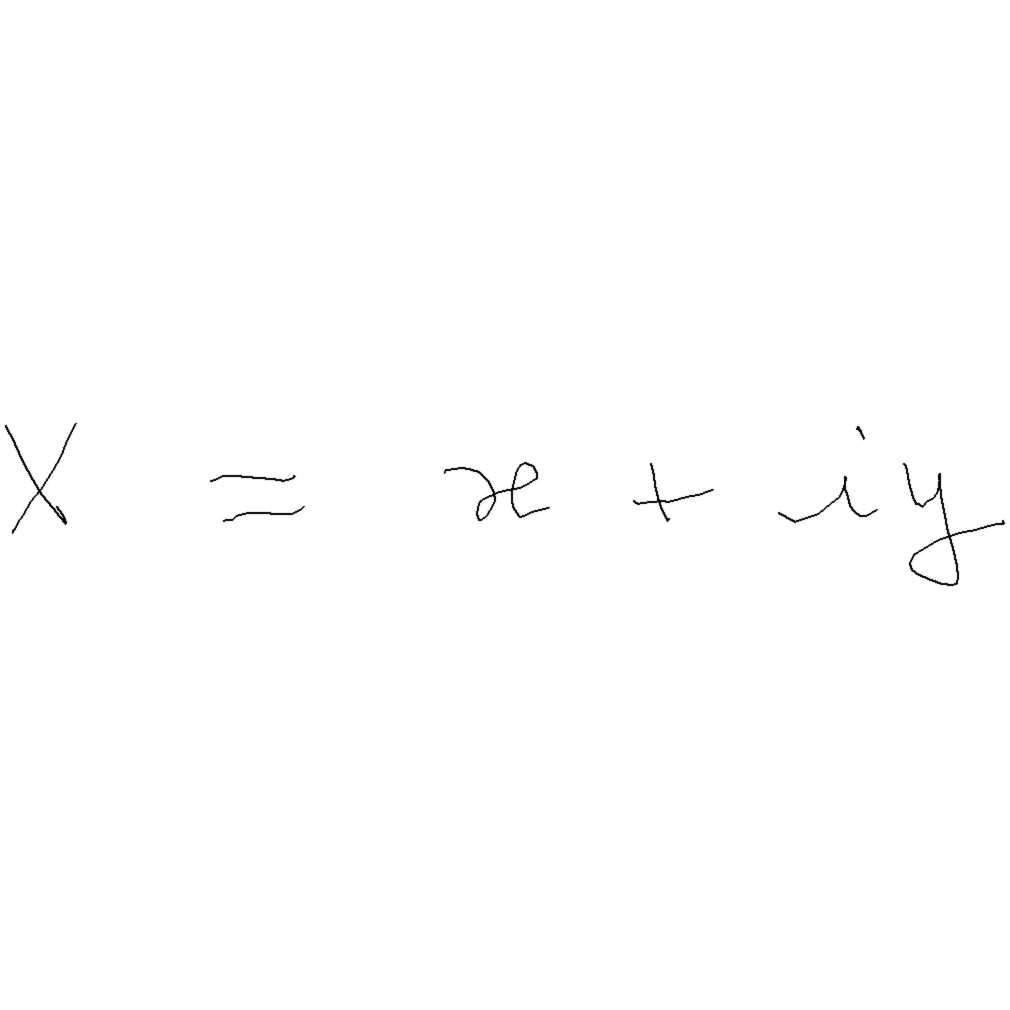 X = x + iy